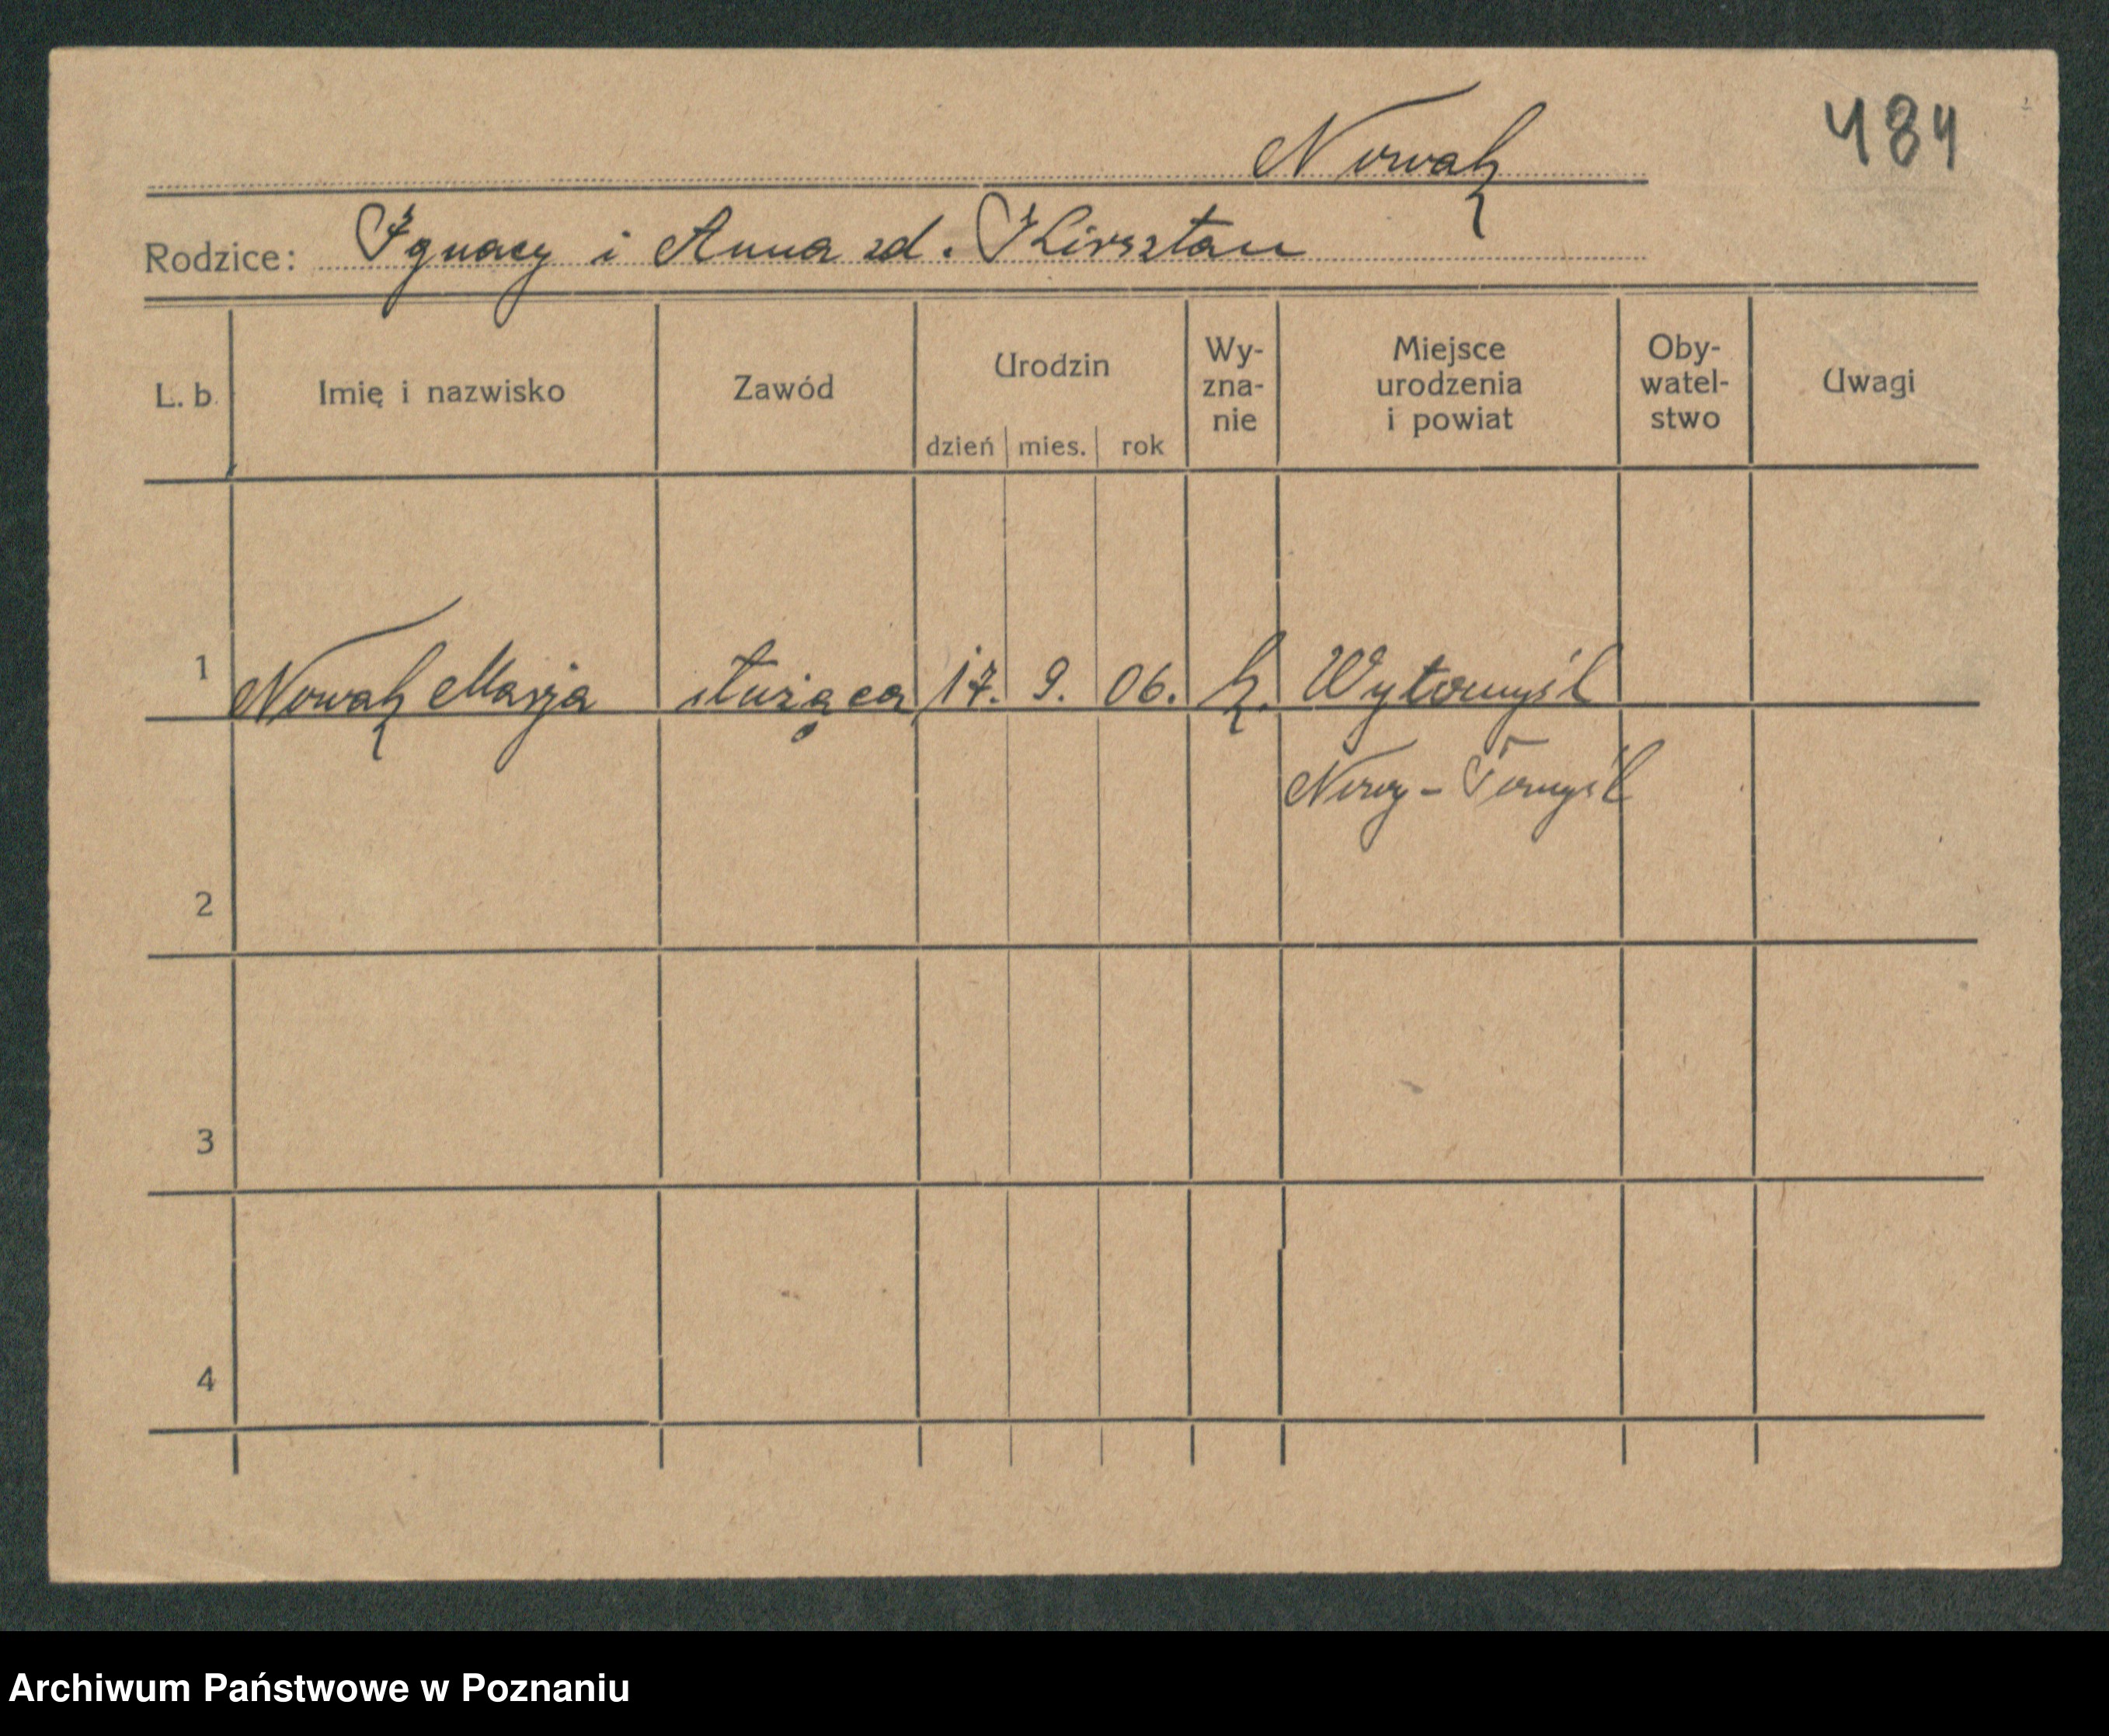 Nowak
484
Rodzice: Ignacy i Anna zd. Kirsztan
L. b. Imię i nazwisko Zawód Urodzin dzień mies. rok Wy-zna-nie Miejsce urodzenia i powiat Oby-watel-stwo Uwagi
1 Nowak Marja służąca 17. 9. 06. k. Wytomyśl
Nowy-Tomyśl
2
3
4
Archiwum Państwowe w Poznaniu